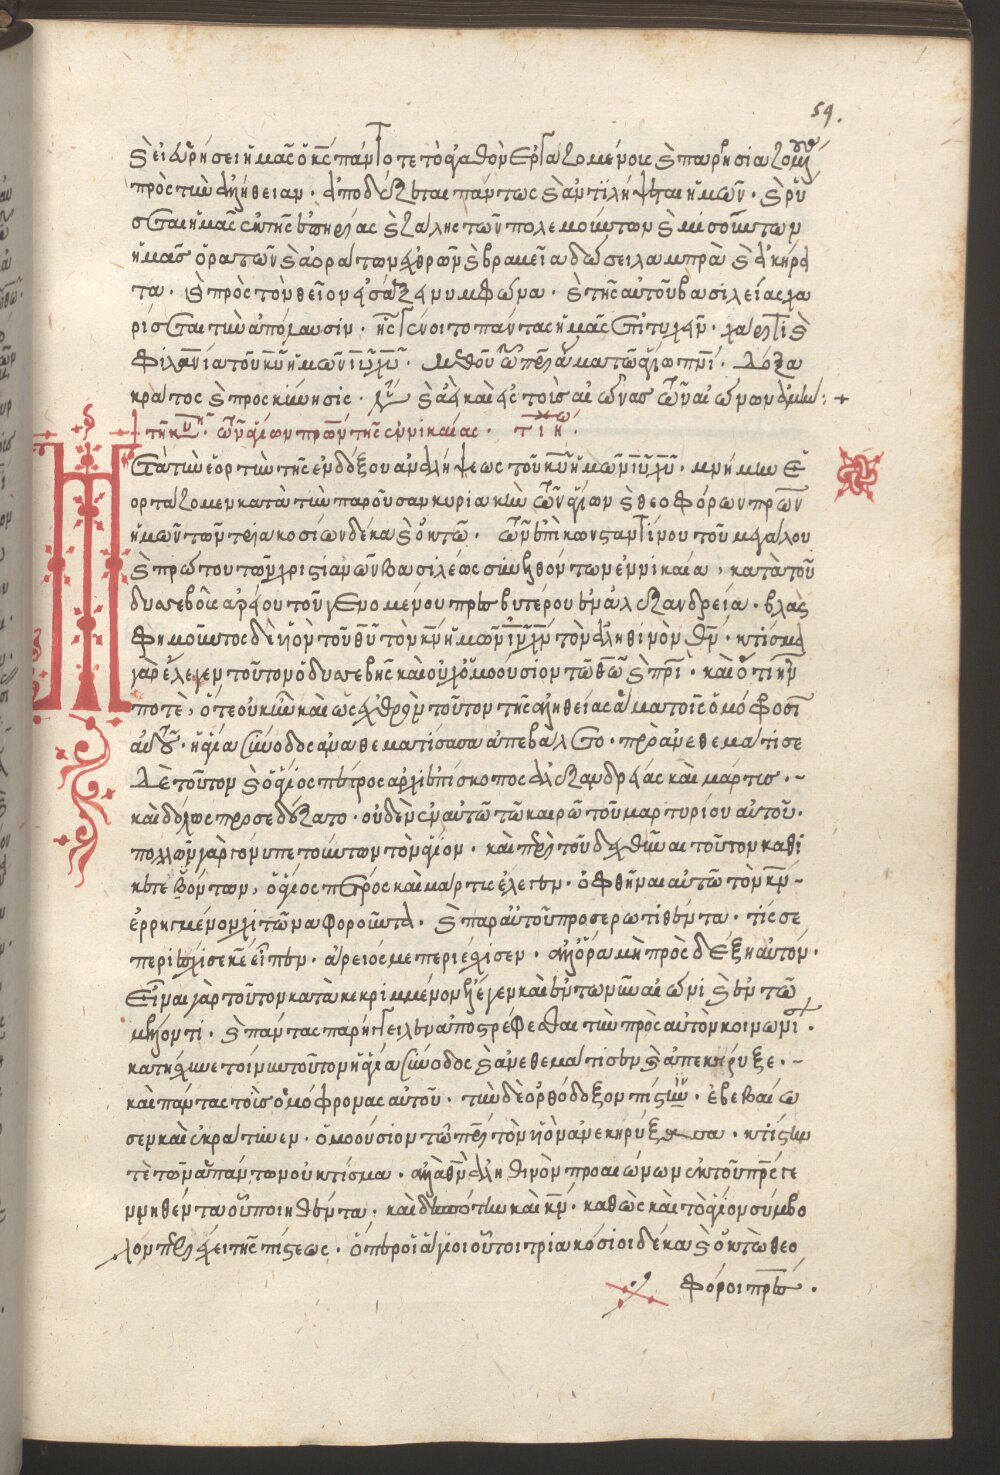 59.
καὶ εἰρήσει ἡμᾶς ὁ κς πάντοτε τὸ ἀγαθὸν ἐργαζομένους καὶ παρρησιαζομένους
πρὸς τὴν ἀλήθειαν. ἀποδέξεται πάντως καὶ ἀντιλήψεται ἡμῶν. καὶ ῥύ
σεται ἡμᾶς ἐκ τῆς καὶ ζάλης τῶν πολεμούντων καὶ μισούντων
ἡμᾶς ὁρατῶν καὶ ἀοράτων ἐχθρῶν καὶ βραβεῖα δώσει λαμπρὰ καὶ ἀκήρα
τα. καὶ πρὸς τὸν θεῖον εἰσάξει νυμφῶνα. καὶ τῆς αὐτοῦ βασιλείας χα
ρίσεται τὴν ἀπόλαυσιν. ἧς γένοιτο πάντας ἡμᾶς ἐπιτυχεῖν. χάριτι καὶ
φιλανίᾳ τοῦ κυ ἡμῶν ιυ χυ. μεθ οὗ τῷ πρι ἅμα τῷ ἁγίω πνι. δόξα
κράτος καὶ προσκύνησις. νῦν καὶ ἀεὶ καὶ εἰς τοὺς αἰῶνας τῶν αἰώνων ἀμήν :+
τῇ κυ. τῶν ἁγίων πρων τῆς ἐν νικαίας. τιη.
Μετὰ τὴν ἑορτὴν τῆς ἐνδόξου ἀναλήψεως τοῦ κυ ἡμῶν ιυ χυ. μνήμην ἑ
ορτάζομεν κατὰ τὴν παροῦσαν κυριακὴν τῶν ἁγίων καὶ θεοφόρων πρων
ἡμῶν τῶν τριακοσίων δέκα καὶ ὀκτώ. τῶν ἐπὶ κωνσταντίνου τοῦ μεγάλου
καὶ πρώτου τῶν χριστιανῶν βασιλέως συνελθόντων ἐν νικαία, κατὰ τοῦ
δυσσεβοῦς ἀρείου τοῦ γενομένου πρεσβυτέρου ἐν ἀλεξανδρεία. βλασ
φημοῦντος δὲ εἰς τὸν υἱὸν τοῦ θυ τὸν κν ἡμῶν ιν χν τὸν ἀληθινὸν θν. κτίσμα
γὰρ ἔλεγεν τοῦτον ὁ δυσσεβὴς καὶ οὐχ ὁμοούσιον τῷ θῶ καὶ πρι. καὶ ὅτι ἦν
ποτὲ, ὅτε οὐκ ἦν καὶ ὡς ἐχθρὸν τοῦτον τῆς ἀληθείας ἅμα τοῖς ὁμόφροσιν
αὐτοῦ. ἡ ἁγία σύνοδος ἀναθεματίσασα ἀπεβάλετο. προανεθεμάτισε
δὲ τοῦτον καὶ ὁ ἅγιος πέτρος ἀρχιεπίσκοπος ἀλεξανδρείας καὶ μάρτυς.~
καὶ δόλως προσεδέξατο. οὐδὲν ἐν αὐτῶ τῶ καιρῶ τοῦ μαρτυρίου αὐτοῦ.
πολλῶν γὰρ τῶν ὑπετούντων τὸν ἅγιον. καὶ περὶ τοῦ δεχθῆναι τοῦτον καθι
κετευόντων, ὁ ἅγιος πέτρος καὶ μάρτυς ἔλεγεν. ὀφθῆναι αὐτῶ τὸν κν ~
ἐρρηγμένον χιτῶνα φοροῦντα. καὶ παρ αὐτοῦ προσερωτιθέντα. τίς σε
περιέσχισε κε εἶπεν. ἄρειός με περιέσχισεν. ἀλλ ὅρα μὴ προσδέξη αὐτόν.
Εἶναι γὰρ τοῦτον κατακεκριμμένον ἔλεγεν καὶ ἐν τω νῦν αἰῶνι καὶ ἐν τῶ
μέλλοντι. καὶ πάντας παρήγγειλεν ἀποστρέφεσθαι τὴν πρὸς αὐτὸν κοινωνίαν.
κατήσχυνε τοίνυν τοῦτον ἡ ἁγία σύνοδος καὶ ἀνεθεμάτισεν καὶ ἀπεκήρυξε.~
καὶ πάντας τοὺς ὁμόφρονας αὐτοῦ. τὴν δὲ ὀρθόδοξον πίστιν. ἐβεβαίω
σεν καὶ ἐκράτυνεν. ὁμοούσιον τῷ πρι τὸν υἱὸν ἀνεκήρυξασα. κτίστην
τὲ τῶν ἁπάντων οὐ κτίσμα. ἀλλὰ θν ἀληθινὸν πρὸ αἰώνων ἐκ τοῦ πρς γε
ννηθέντα οὐ ποιηθέντα. καὶ δεσπότην καὶ κν. καθὼς καὶ τὸ ἅγιον σύμβο
λον περιέχει τῆς πίστεως. ὅπερ οἱ ἅγιοι οὗτοι τριακόσιοι δέκα καὶ ὀκτὼ θεο
φόροι πρες.